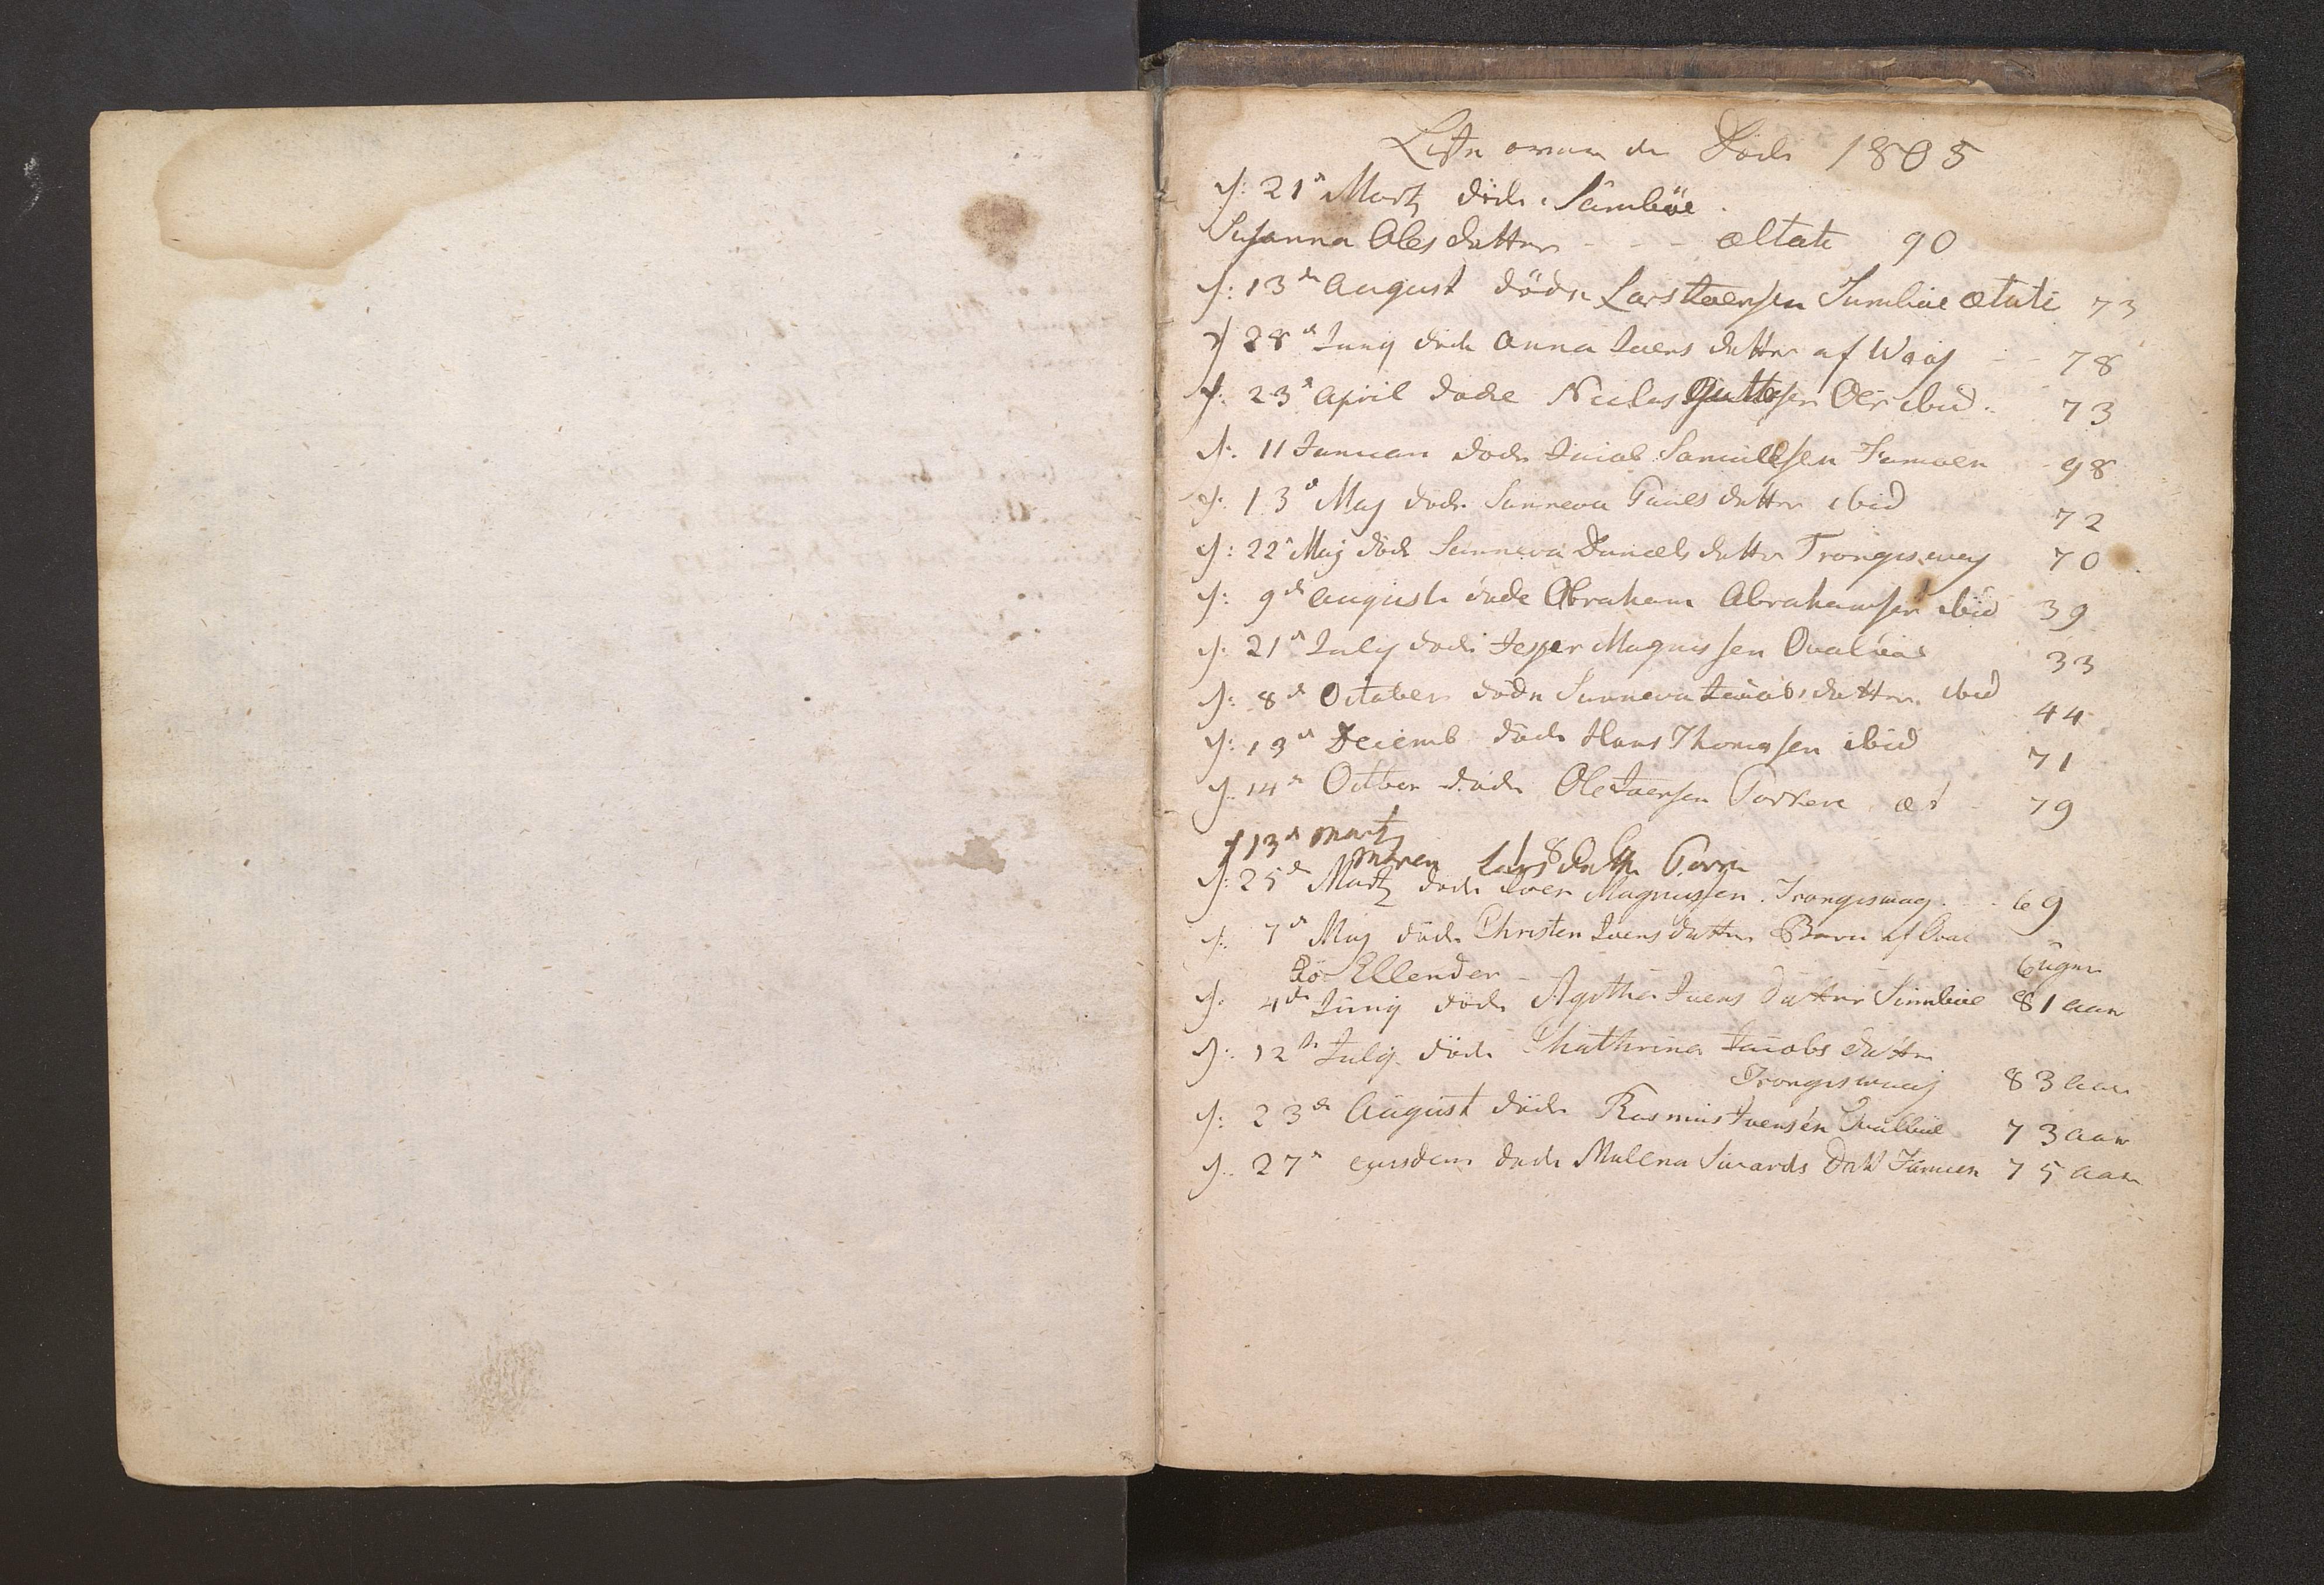 Liste over de Döde 1805
d: 21de Martz döde i Sumböe
Susanna Olesdatter - - - ætate 90
d: 13de August döde Lars Iversen Sumböe ætate 73
d 28de Junij döde Anna Iversdatter af Waaj - - 78
d: 23de April døde Niclas Guttesen Oer ibid. 73
d: 11 Januari døde Jacob Samuelsen Famoen 98
d: 13de Maj døde Sunneva Pauls datter ibid 72
d: 22de Maj døde Sunneva Daniels datter Trongiswaag 70
d: 9de august døde Abraham Abrahamsen ibid 39
d: 21de July døde Jesper Magnussen Qvalböe 33
d: 8de October døde Sunneva Jacobsdatter ibid 44
d: 13de Decemb døde Hans Thomasen ibid 71
d: 14de Octber døde Ole Iversen Porkere æt 79
d 13de Martz
Maren Larsdatter
d: 25de Martz døde Iver Magnussen Trongiswaag 69
d: 7de Maj døde Christen Iversdatter Barn af Qval
böe Ellender 6 uger
d: 4de Junij døde Agatha Iversdatter Sumböe 81 aar
d: 12te July døde Chathrina Jacobs datter
Trongiswaaj 83 aar
d: 23de August døde Rasmus Iversen Qvalböe 73 aar
d: 27de ejusdem døde Malena Sivards Datt Famien 75 aar